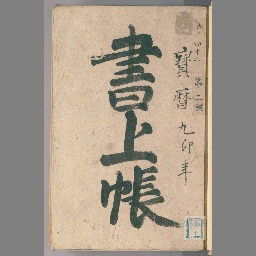 寶暦九卯年
書上帳